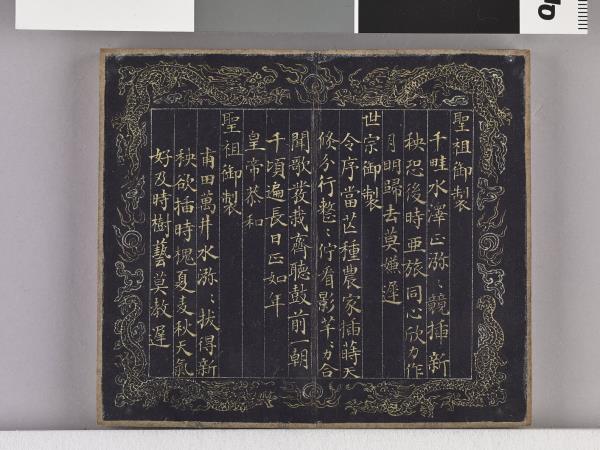 聖祖御製
千畦水澤正瀰〻競插新
秧恐後時亞旅同心欣力作
月明歸去莫嫌遲
世宗御製
令序當芒種農家插蒔天
倏分行整〻佇看影芊〻力合
聞歌發栽齊聽鼓前一朝
千頃遍長日正如年
皇帝恭和
聖祖御製
甫田萬井水瀰〻拔得新
秧欲插時槐夏麥秋天氣
好及時樹藝莫教遲